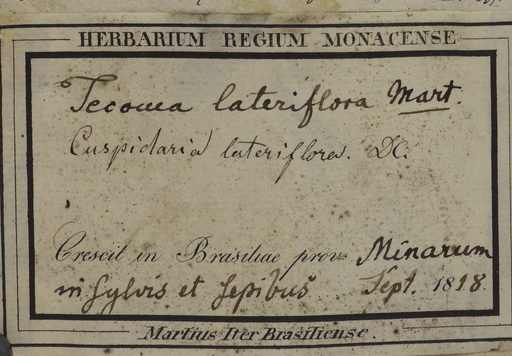 HERBARIUM REGIUM MONACENSE
Tecoma lateriflora Mart.
Cuspidaria lateriflora. DC.
Crescit in Brasiliae prov. Minarum
in sylvis et sepibus Sept. 1818.
Martius Iter Brasiliense.